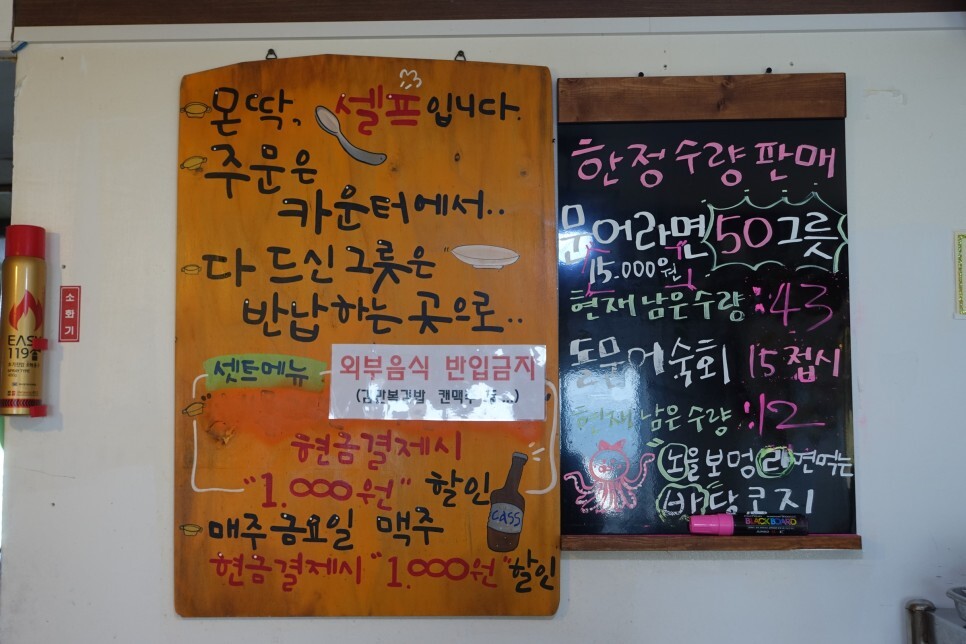 몬딱, 셀프입니다.
주문은
카운터에서..
다 드신 그릇은
반납하는 곳으로..
셋트메뉴
외부음식 반입금지
현금결제시
"1.000원" 할인
CASS
매주 금요일 맥주
현금결제시 "1.000원" 할인
한정수량판매
문어라면 50그릇
15.000원
현재 남은수량:43
돌문어숙회 15접시
현재 남은수량:12
노을보멍 라면먹는
바당코지
BLACKBOARD
소화기
119